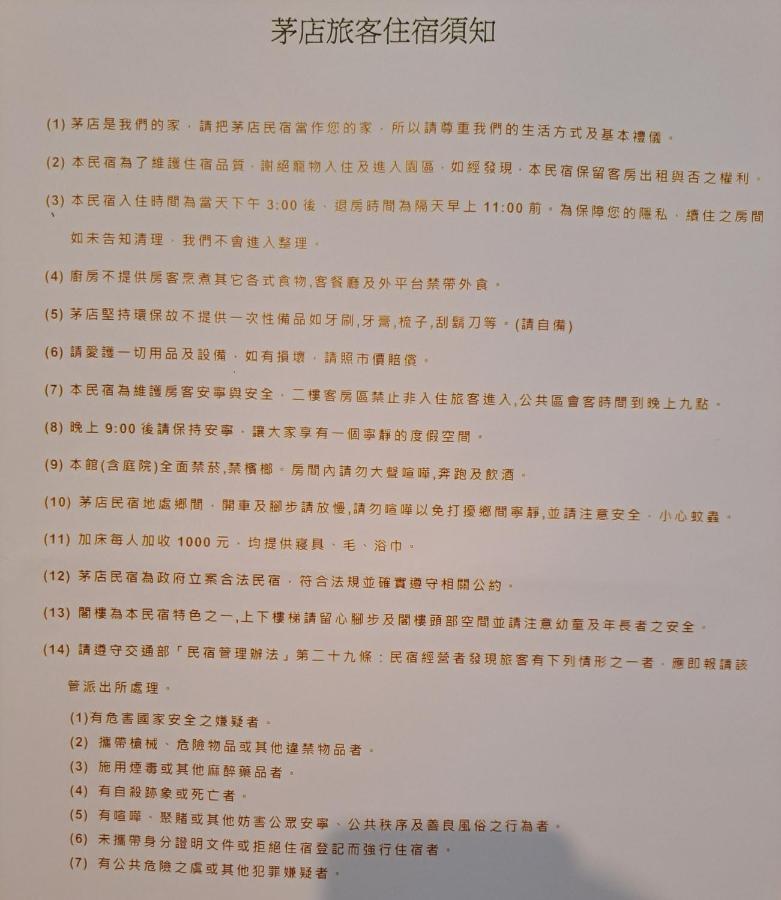 茅店旅客住宿須知
(1) 茅店是我們的家，請把茅店民宿當作您的家，所以請尊重我們的生活方式及基本禮儀。
(2) 本民宿為了維護住宿品質，謝絕寵物入住及進入園區，如經發現，本民宿保留客房出租與否之權利。
(3) 本民宿入住時間為當天下午 3:00 後、退房時間為隔天早上 11:00 前。為保障您的隱私，續住之房間
如未告知清理，我們不會進入整理。
(4) 廚房不提供房客烹煮其它各式食物,客餐廳及外平台禁帶外食。
(5) 茅店堅持環保故不提供一次性備品如牙刷,牙膏,梳子,刮鬍刀等。(請自備)
(6) 請愛護一切用品及設備，如有損壞，請照市價賠償。
(7) 本民宿為維護房客安寧與安全，二樓客房區禁止非入住旅客進入,公共區會客時間到晚上九點。
(8) 晚上 9:00 後請保持安寧，讓大家享有一個寧靜的度假空間。
(9) 本館(含庭院)全面禁菸,禁檳榔。房間內請勿大聲喧嘩,奔跑及飲酒。
(10) 茅店民宿地處鄉間，開車及腳步請放慢,請勿喧嘩以免打擾鄉間寧靜,並請注意安全，小心蚊蟲。
(11) 加床每人加收 1000 元，均提供寢具、毛、浴巾。
(12) 茅店民宿為政府立案合法民宿，符合法規並確實遵守相關公約。
(13) 閣樓為本民宿特色之一,上下樓梯請留心腳步及閣樓頭部空間並請注意幼童及年長者之安全。
(14) 請遵守交通部「民宿管理辦法」第二十九條：民宿經營者發現旅客有下列情形之一者，應即報請該
管派出所處理。
(1)有危害國家安全之嫌疑者。
(2) 攜帶槍械、危險物品或其他違禁物品者。
(3) 施用煙毒或其他麻醉藥品者。
(4) 有自殺跡象或死亡者。
(5) 有喧嘩、聚賭或其他妨害公眾安寧、公共秩序及善良風俗之行為者。
(6) 未攜帶身分證明文件或拒絕住宿登記而強行住宿者。
(7) 有公共危險之虞或其他犯罪嫌疑者。